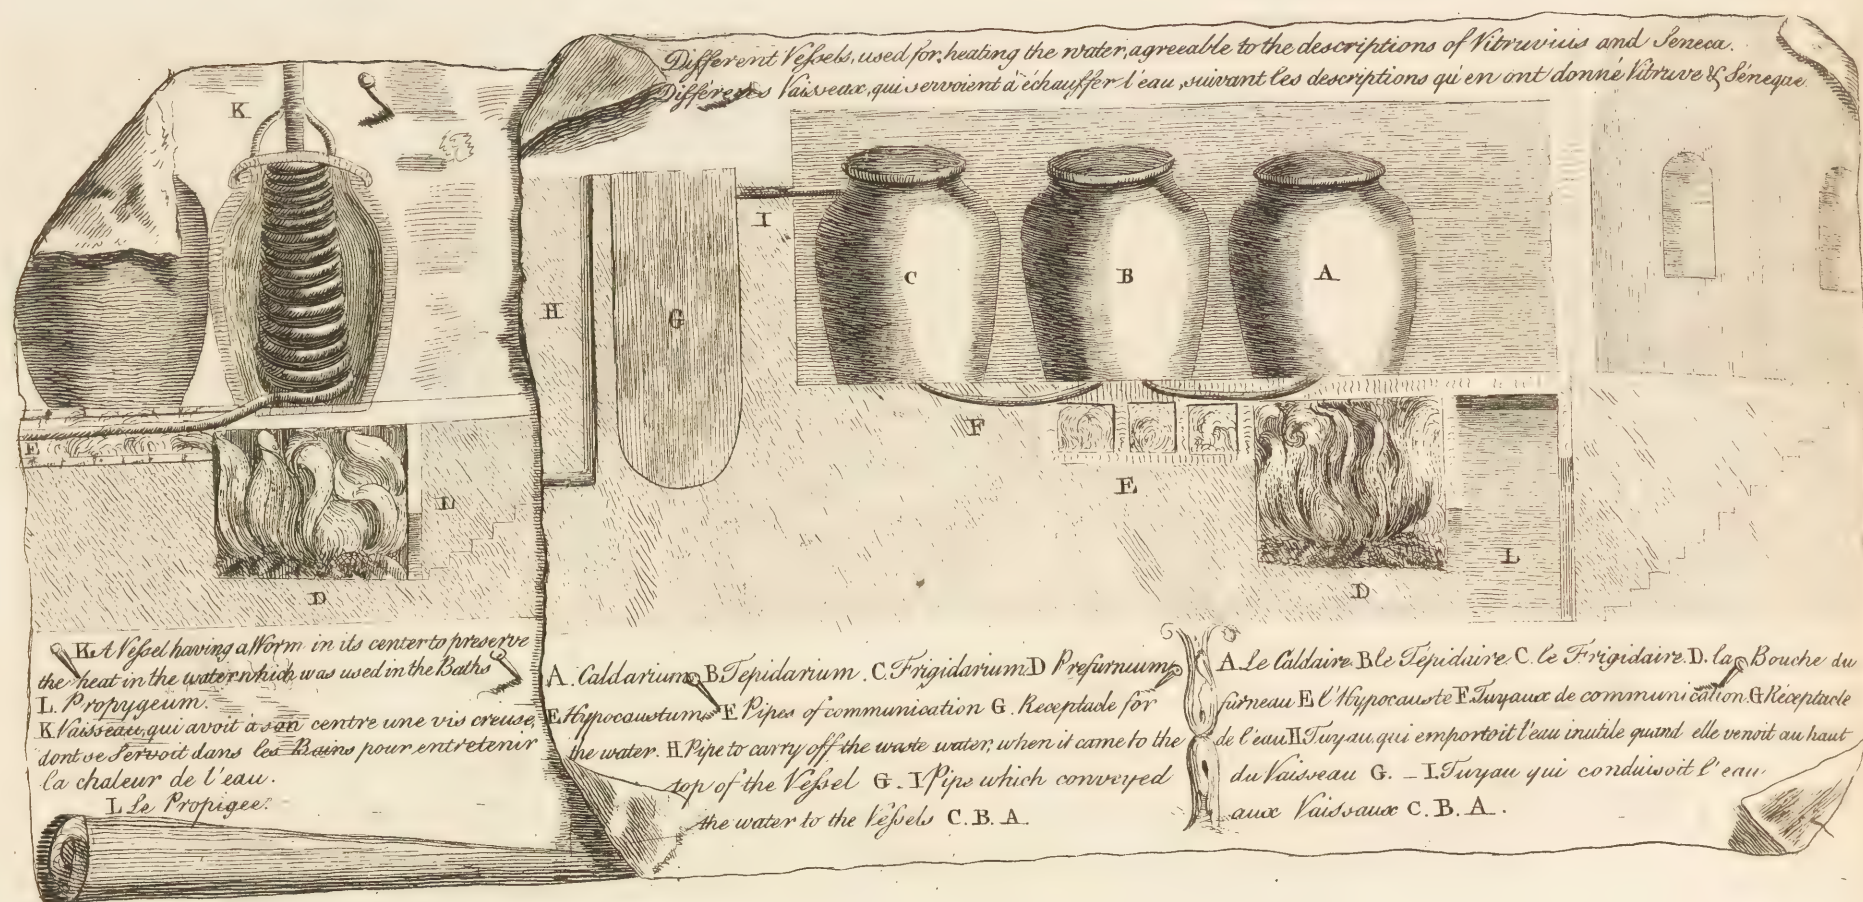 Different Veſsels, used for, heating the water, agreeable to the descriptions of Vitruvius and Seneca.
Différens Vaisseaux, qui servoient à échauffer l'eau, suivant les descriptions qu'en ont donné Vitruve & Séneque.
K
I
H
G
C
B
A
F
E
E
L
L
D
D
K. A Veſsel having a Worm in its center to preserve
the heat in the water which was used in the Baths
L. Propygeum.
K Vaisseau, qui avoit à son centre une vis creuse,
dont se Servoit dans les Bains pour entretenir
la chaleur de l'eau.
L Le Propigee.
A. Caldarium B. Tepidarium. C. Frigidarium D Prefurnium
E Hypocaustum F Pipes of communication G. Receptacle for
the water. H. Pipe to carry off the waste water, when it came to the
top of the Veſsel G. I Pipe which conveyed
the water to the Veſsels C. B. A.
A Le Caldaire B le Tepidaire C. le Frigidaire. D. la Bouche du
furneau E l'Hypocauste F. Tuyaux de communication. G Réceptacle
de l'eau H Tuyau, qui emportoit l'eau inutile quand elle venoit au haut
du Vaisseau G. - I. Tuyau qui conduisoit l'eau
aux Vaissaux C. B. A.